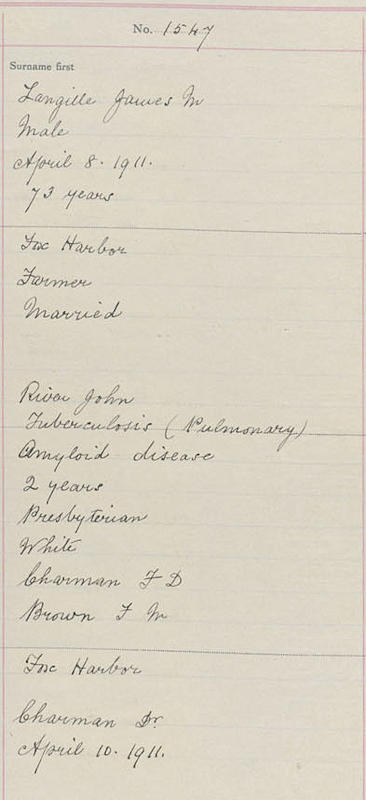 No. 1547
Surname first
Langille James M
Male
April 8. 1911.
73 years
Fox Harbor
Farmer
Married
River John
Tuberculosis (Pulmonary)
Amyloid disease
2 years
Presbyterian
White
Charman F D
Brown F M
Fox Harbor
Charman Dr.
April 10. 1911.